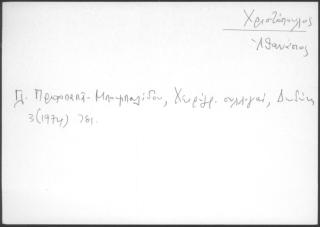 Χριστόπουλος
Ἀθανάσιος
Π. Πρωτοπαπᾶ-Μπουμπουλίδου, Χειρόγρ. συλλογαί, Δωδώνη
3 (1974) 781.